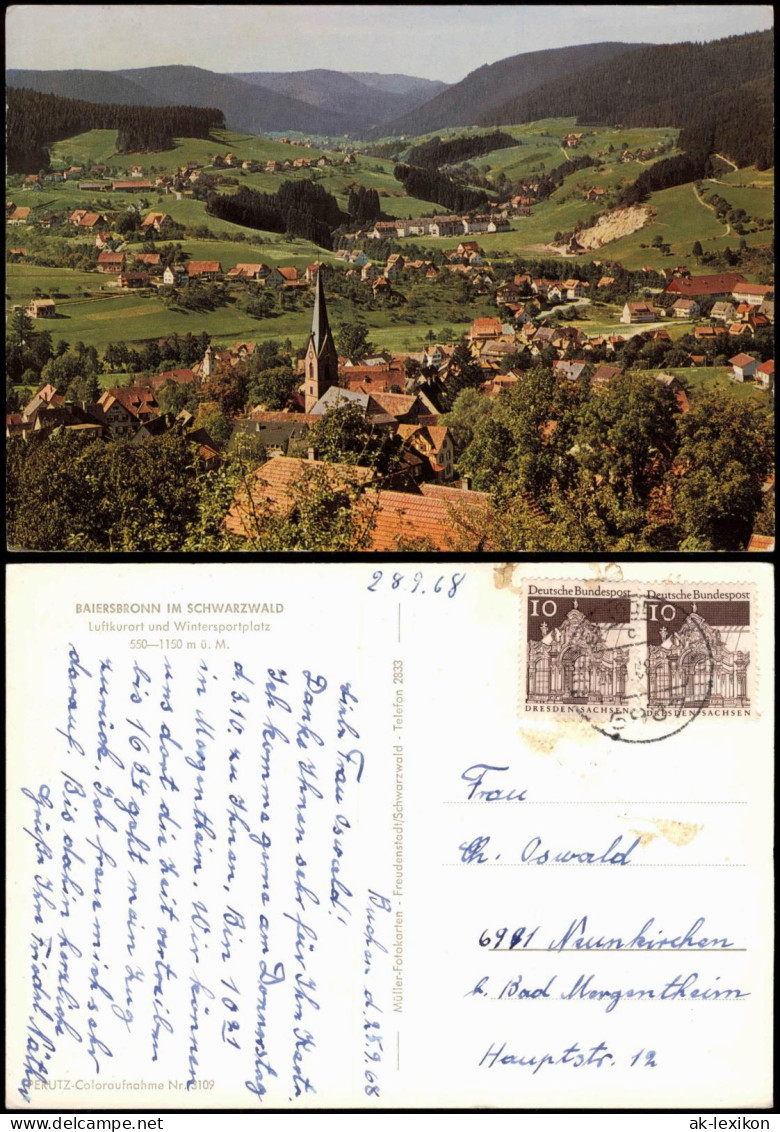 BAIERSBRONN IM SCHWARZWALD
Luftkurort und Wintersportplatz
550—1150 m ü. M.
28.9.68
Buchen d. 25.9.68
Liebe Frau Oswald!
Danke Ihnen sehr für Ihre Karte.
Ich komme gerne am Donnerstag
d. 3.10. zu Ihnen. Bin 10 21
in Mergentheim. Wir können
uns dort die Zeit vertreiben
bis 16 34 geht mein Zug
zurück. Ich freue mich sehr
darauf. Bis dahin herzliche
Grüße Ihre Friedel
PERUTZ-Coloraufnahme Nr. 3109
Müller-Fotokarten - Freudenstadt/Schwarzwald - Telefon 2833
Deutsche Bundespost
10
DRESDEN-SACHSEN
Deutsche Bundespost
10
DRESDEN-SACHSEN
Frau
Ch. Oswald
6991 Neunkirchen
b. Bad Mergentheim
Hauptstr. 12
ak-lexikon